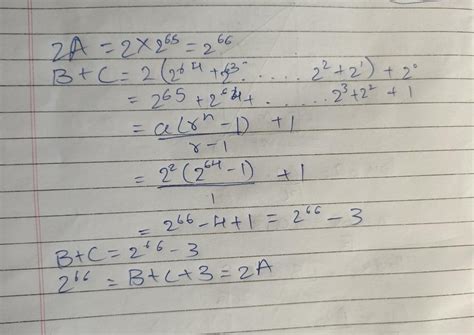 2A = 2 × 2^65 = 2^66
B + C = 2 (2^64 + 2^63 ..... 2^2 + 2^1) + 2^0
= 2^65 + 2^64 + ....... 2^3 + 2^2 + 1
= a(r^n - 1) / r - 1 + 1
= 2^2 (2^64 - 1) / 1 + 1
= 2^66 - 4 + 1 = 2^66 - 3
B + C = 2^66 - 3
2^66 = B + C + 3 = 2A